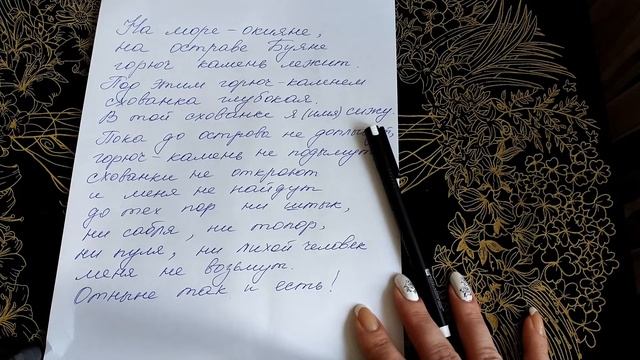 На море-окияне,
на острове Буяне
горюч камень лежит.
Под этим горюч-каменем
схованка глубокая.
В той схованке я (имя) сижу.
Пока до острова не
горюч-камень не подымут
схованки не откроют
и меня не найдут
до тех пор ни штык,
ни сабля, ни топор,
ни пуля, ни лихой человек
меня не возьмут.
Отныне так и есть!